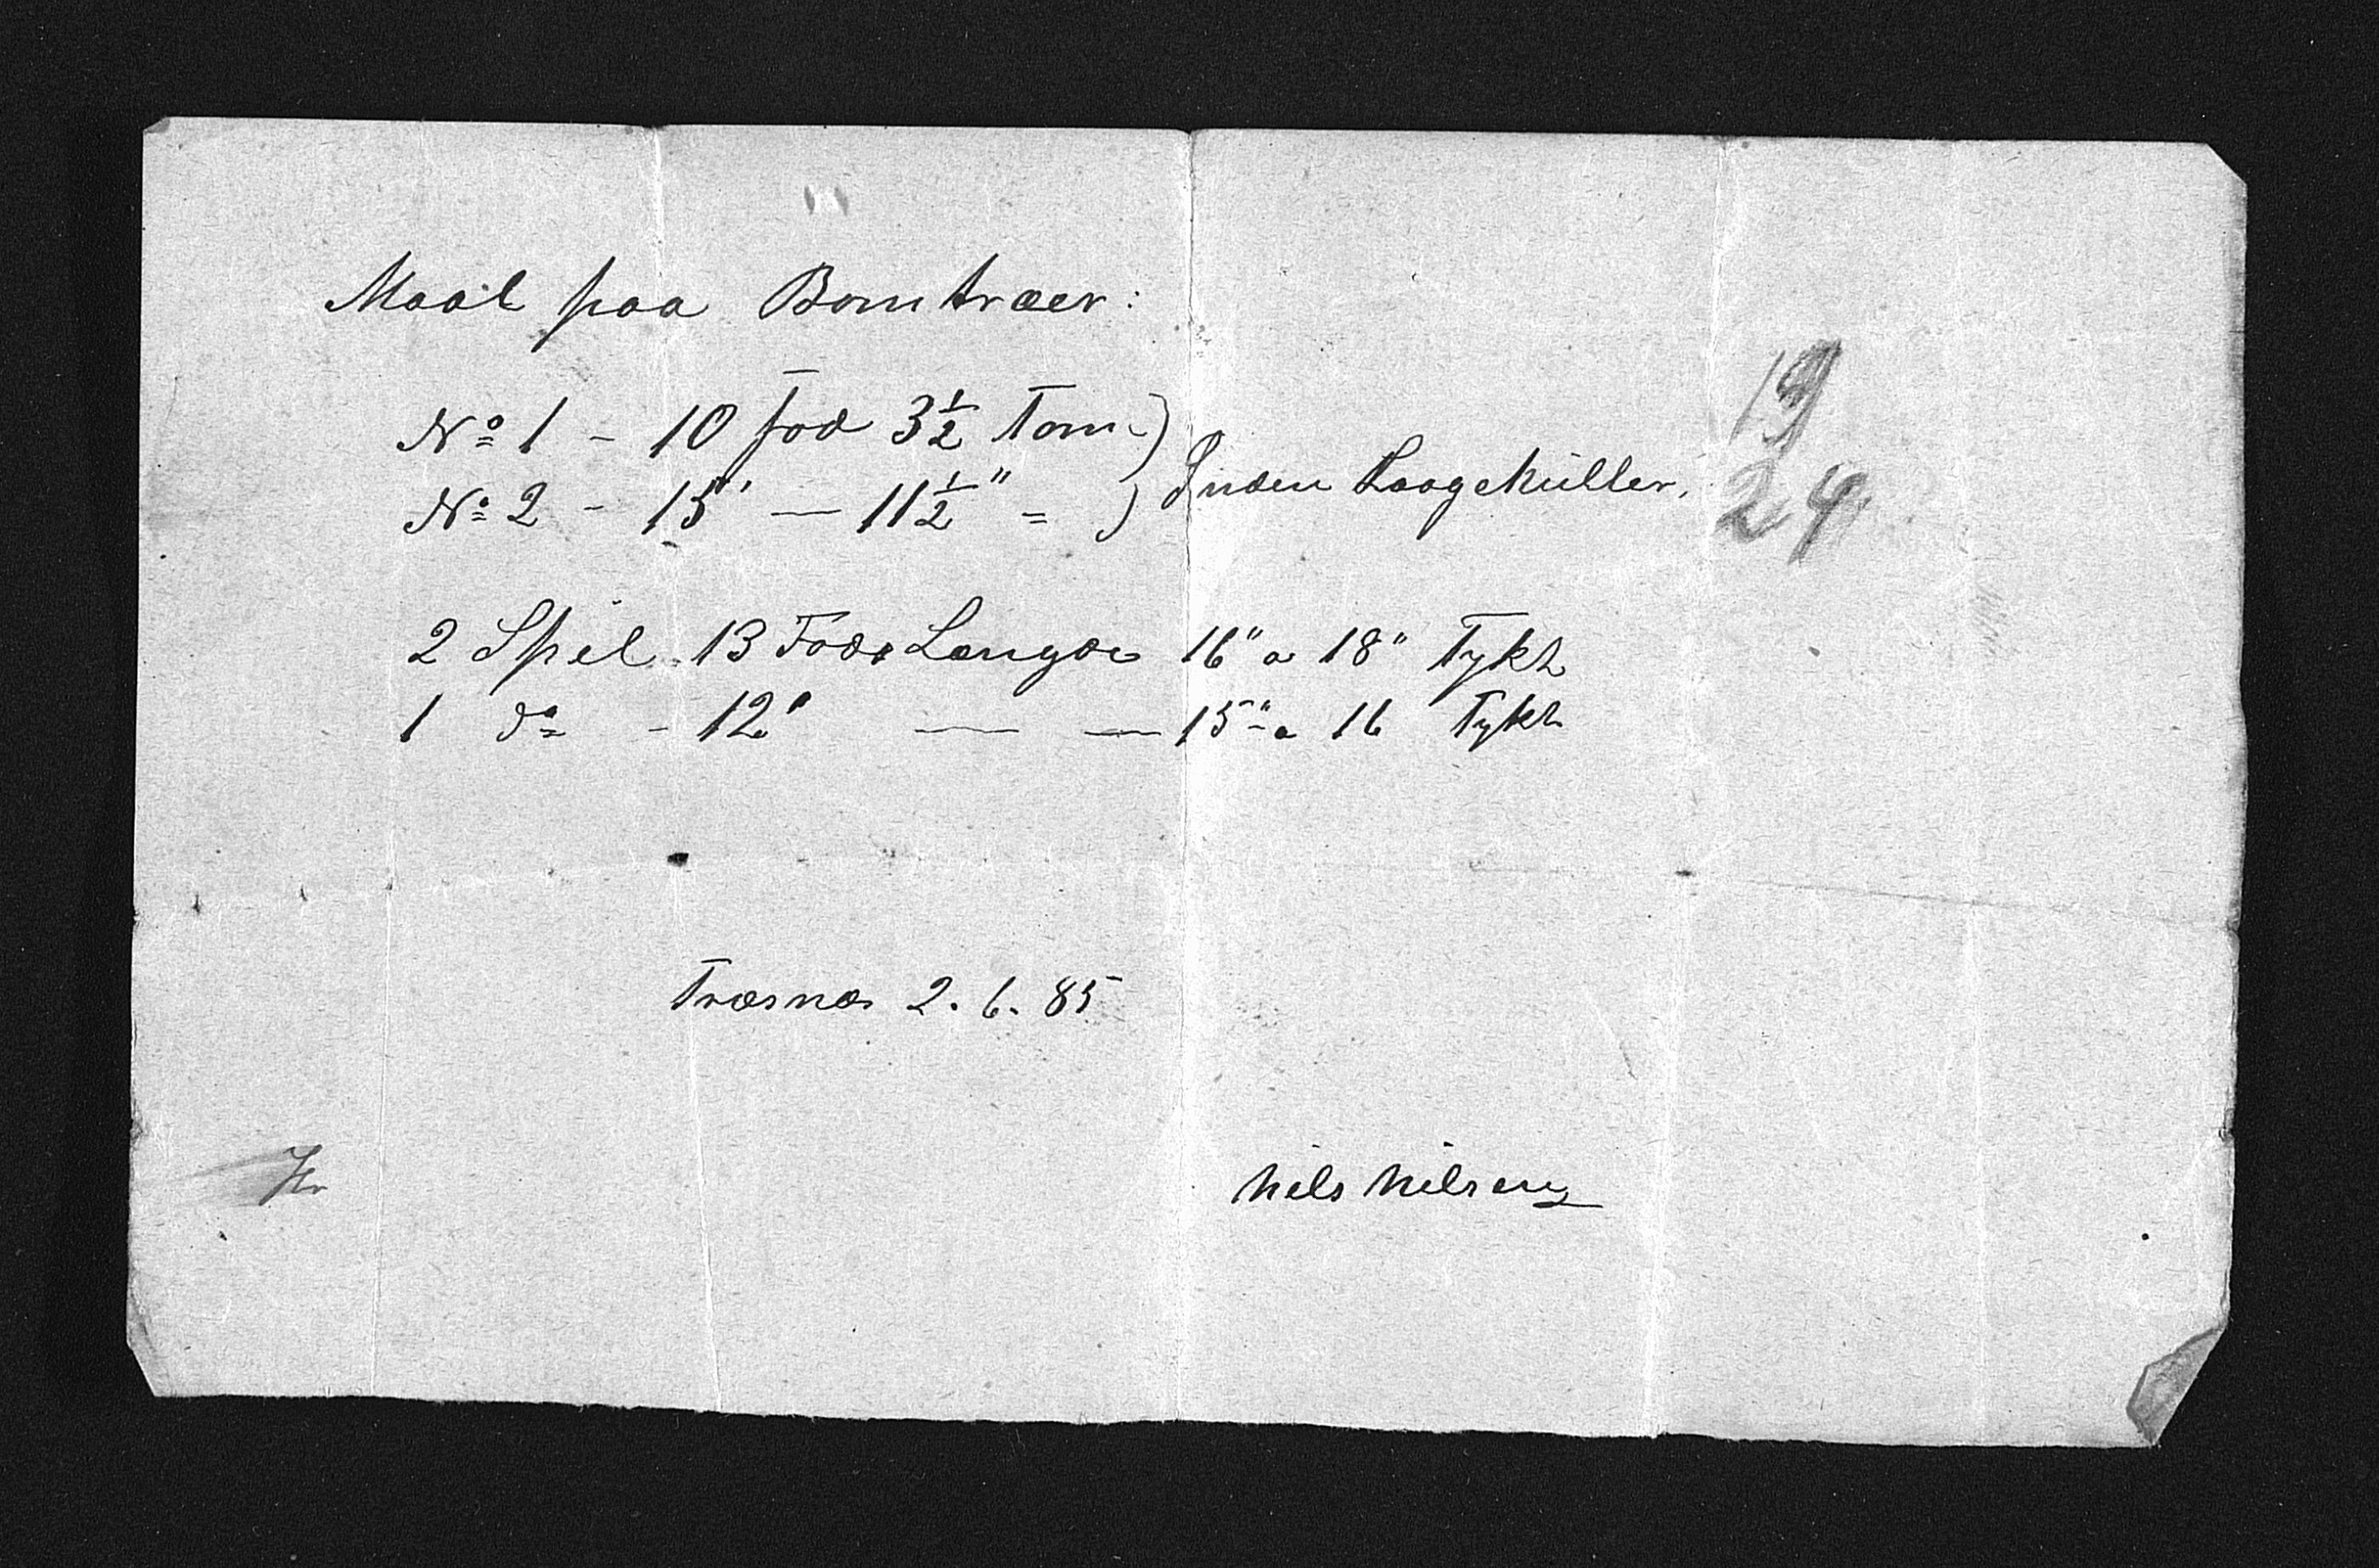 Maal paa Bomtræer:
No 1 - 10 fod 3½ Tom )
No 2 - 15' — 11½" = ) Inden Laagekuller.
19
24
2 Spil 13 Fods Længde 16" a 18" Tykt
1 do - 12' — — 15" a 16 Tykt
Træsnæs 2. 6. 85
Hr
Nils Nilsen